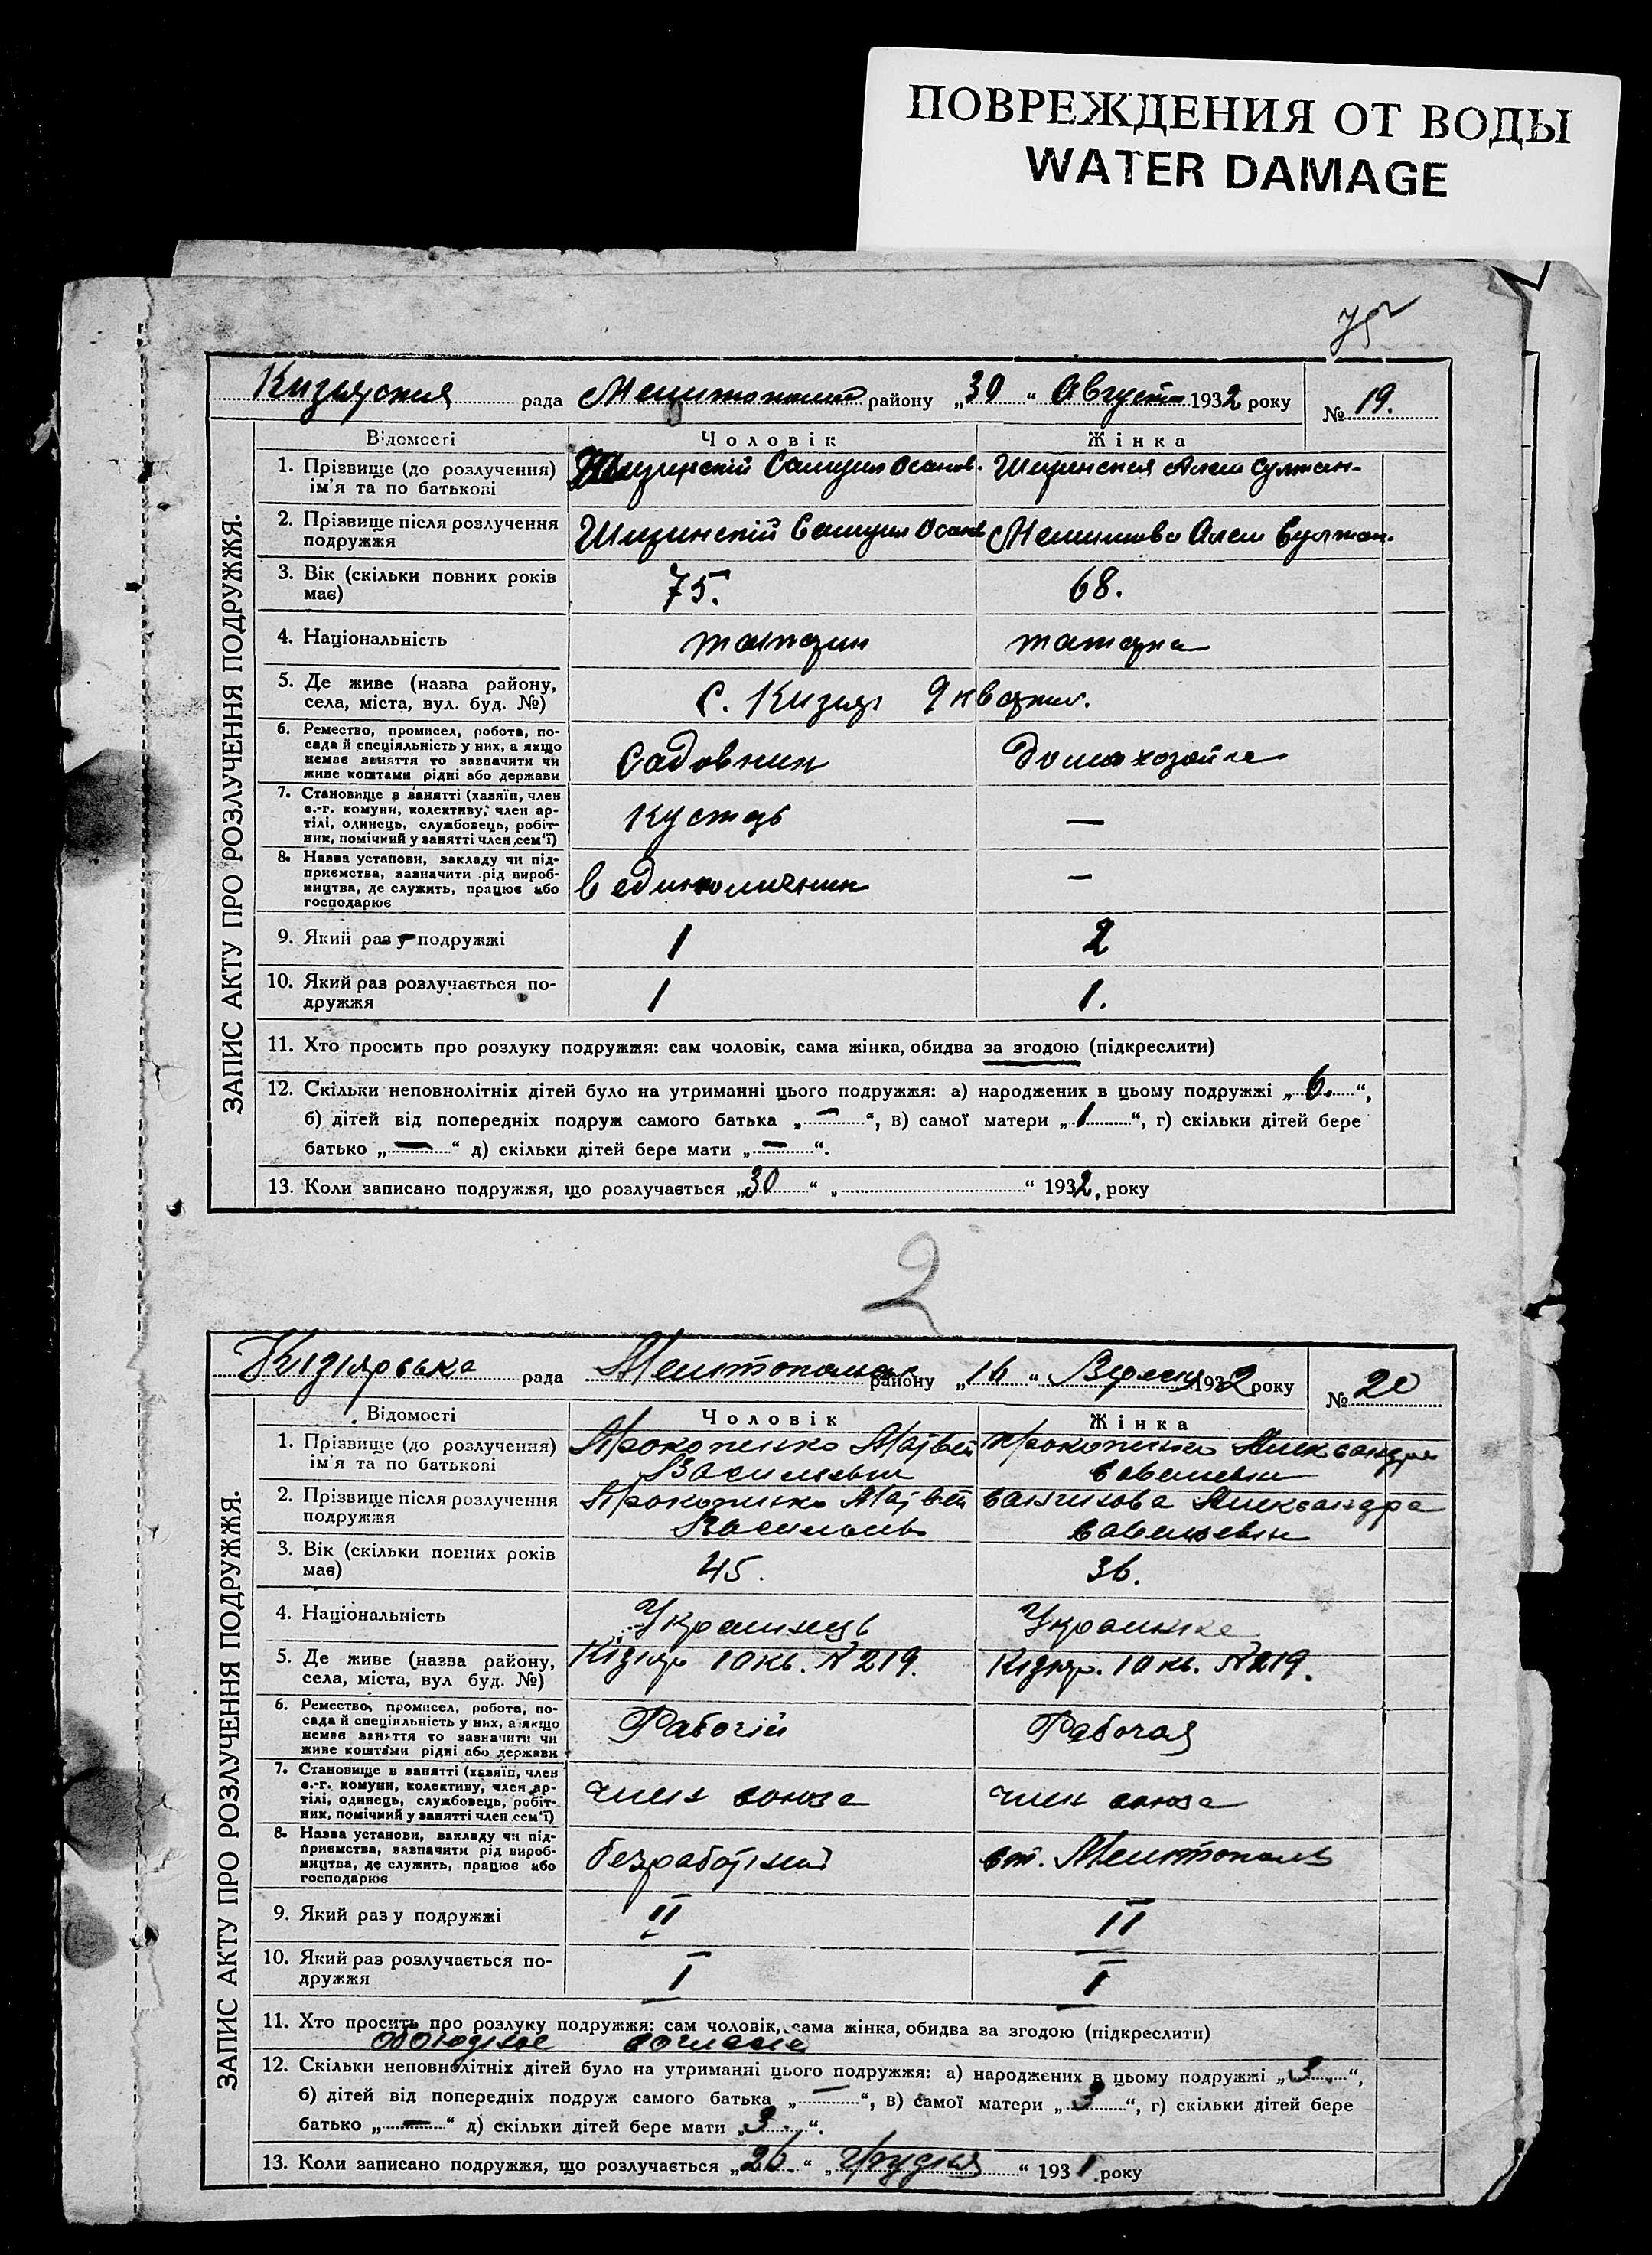 ПОВРЕЖДЕНИЯ ОТ ВОДЫ
WATER DAMAGE
Кизиярская рада Мелитополь району „30“ Августа 1932 року № 19.
ЗАПИС АКТУ ПРО РОЗЛУЧЕННЯ ПОДРУЖЖЯ.
Відомості Чоловік Жінка
1. Прізвище (до розлучення)
ім'я та по батькові
2. Прізвище після розлучення
подружжя
3. Вік (скільки повних років 75. 68.
має)
4. Національність татарин татарка
5. Де живе (назва району,
села, міста, вул. буд. №) с. Кизияр 9 кварт.
6. Ремество, промисел, робота, по-
сада й спеціяльність у них, а якщо
немає заняття то зазначити чи Садовник Домохозяйка
живе коштами рідні або держави
7. Становище в занятті (хазяїн, член
с.-г. комуни, колективу, член ар-
тілі, одинець, службовець, робіт- кустарь —
ник, помічний у занятті член сем'ї)
8. Назва установи, закладу чи під-
приємства, зазначити рід вироб-
ництва, де служить, працює або —
господарює
9. Який раз у подружжі 1 2
10. Який раз розлучається по- 1 1.
дружжя
11. Хто просить про розлуку подружжя: сам чоловік, сама жінка, обидва за згодою (підкреслити)
12. Скільки неповнолітніх дітей було на утриманні цього подружжя: а) народжених в цьому подружжі „6.“,
б) дітей від попередніх подруж самого батька „—“, в) самої матери „1“, г) скільки дітей бере
батько „—“ д) скільки дітей бере мати „—“.
13. Коли записано подружжя, що розлучається „30“ „ “ 1932. року
2
Кизіярська рада Мелитопольск району „16“ Вересня 1932 року № 20
ЗАПИС АКТУ ПРО РОЗЛУЧЕННЯ ПОДРУЖЖЯ.
Відомості Чоловік Жінка
1. Прізвище (до розлучення) Прокопенко Матвей Прокопенко Александра
ім'я та по батькові
2. Прізвище після розлучення Прокопенко Матвей Александра
подружжя
3. Вік (скільки повних років 45. 36.
має)
4. Національність Украинець Украинка
5. Де живе (назва району, Кізіяр 10 кв. № 219. Кізіяр. 10 кв. № 219.
села, міста, вул буд. №)
6. Ремество, промисел, робота, по-
сада й спеціяльність у них, а якщо Рабочій Рабочая
немає заняття то зазначити чи
живе коштами рідні або держави
7. Становище в занятті (хазяїн, член
с.-г. комуни, колективу, член ар- член союза член союза
тілі, одинець, службовець, робіт-
ник, помічний у занятті член сем'ї)
8. Назва установи, закладу чи під-
приємства, зазначити рід вироб- безработный ст. Мелитополь
ництва, де служить, працює або
господарює
9. Який раз у подружжі II II
10. Який раз розлучається по- I I
дружжя
11. Хто просить про розлуку подружжя: сам чоловік, сама жінка, обидва за згодою (підкреслити)
обоюдное согласие
12. Скільки неповнолітніх дітей було на утриманні цього подружжя: а) народжених в цьому подружжі „3.“,
б) дітей від попередніх подруж самого батька „—“, в) самої матери „3“, г) скільки дітей бере
батько „—“ д) скільки дітей бере мати „3.“.
13. Коли записано подружжя, що розлучається „26.“ „Грудня“ 1931 року